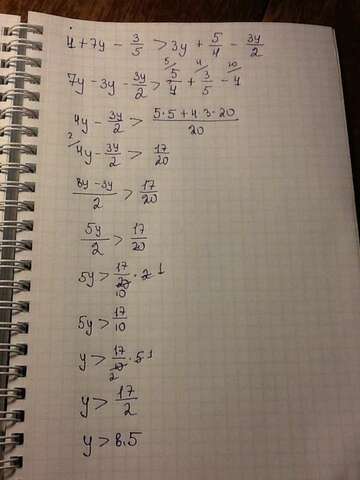 4 + 7y - 3/5 > 3y + 5/4 - 3y/2
7y - 3y - 3y/2 > ⁵/5/4 + ⁴/3/5 - ¹⁰/4
4y - 3y/2 > (5·5 + 4·3·20)/20
²/4y - 3y/2 > 17/20
(8y - 3y)/2 > 17/20
5y/2 > 17/20
5y > 17/20 · 2 1
10
5y > 17/10
y > 17/10 · 5 1
2
y > 17/2
y > 8.5